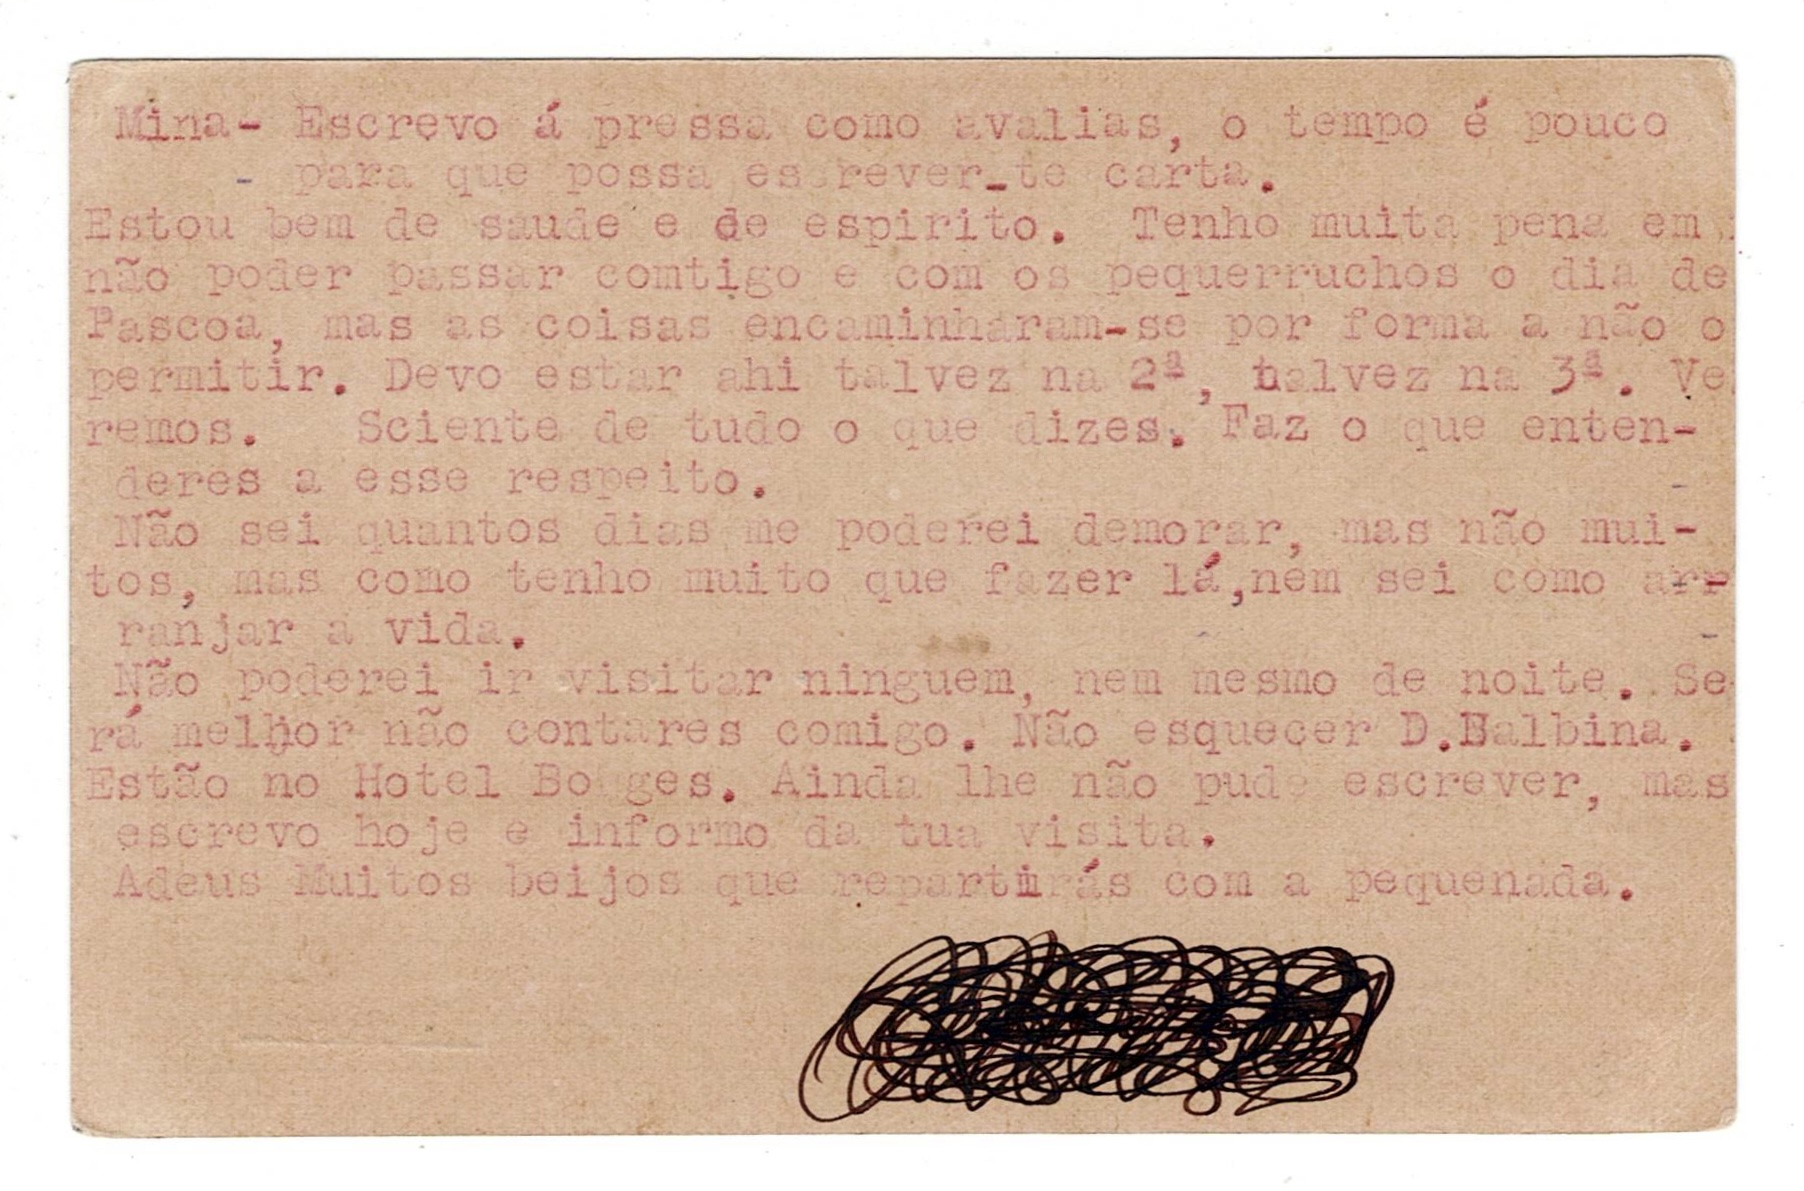 Mina- Escrevo á pressa como avalias, o tempo é pouco
- para que possa es rever-te carta.
Estou bem de saude e de espirito. Tenho muita pena em
não poder passar comtigo e com os pequerruchos o dia de
Pascoa, mas as coisas encaminharam-se por forma a não o
permitir. Devo estar ahi talvez na 2ª, talvez na 3ª. Ve
remos. Sciente de tudo o que dizes. Faz o que enten-
deres a esse respeito.
Não sei quantos dias me poderei demorar, mas não mui-
tos, mas como tenho muito que fazer lá,nem sei como arr
ranjar a vida.
Não poderei ir visitar ninguem, nem mesmo de noite. Se-
rá melhor não contares comigo. Não esquecer D.Balbina.
Estão no Hotel Bo ges. Ainda lhe não pude escrever, mas
escrevo hoje e informo da tua visita.
Adeus Muitos beijos que repartirás com a pequenada.